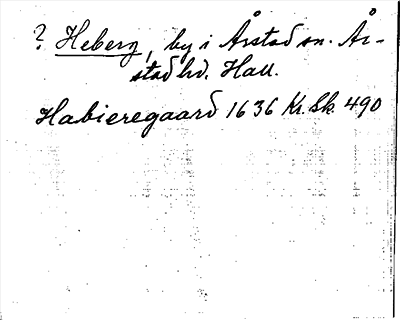 ? Heberg, by i Årstad sn. År-
stad hd. Hall.
Habieregaard 1636 Kr. Sk. 490